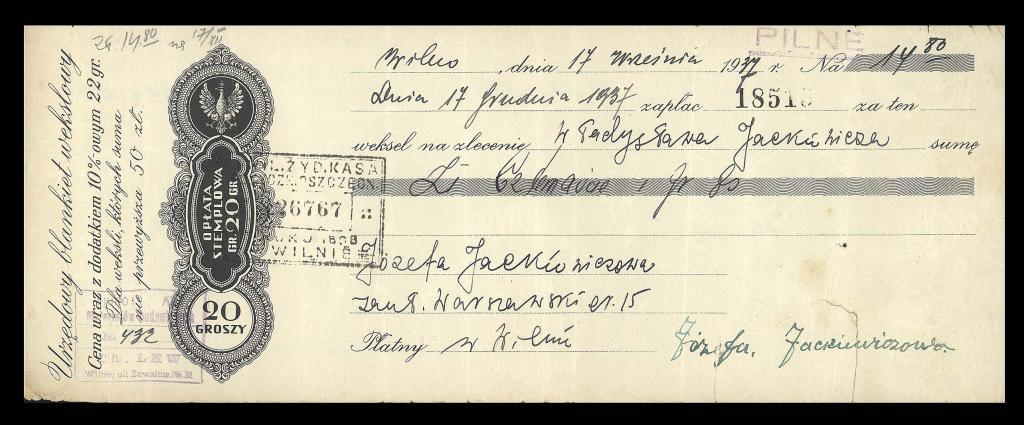 Zł. 14.80 na 17/XII
PILNE
Urzędowy blankiet wekslowy
Cena wraz z dodatkiem 10%-owym 22 gr.
Dla weksli, których suma
nie przewyższa 50 zł.
OPŁATA
STEMPLOWA
GR. 20 GR.
20
GROSZY
Wilno, dnia 17 września 1937 r. Na 14 80
Dnia 17 Grudnia 1937 zapłac 18515 za ten
weksel na zlecenie Władysława Jackiewicza sumę
Zł Czternaście i gr 80
ŻYD. KASA
26767
WILNIE
Józefa Jackiewiczowa
zauł. Warszawski nr. 15
Płatny w Wilnie
Józefa Jackiewiczowa
432
Ch. LEW
Wilno, ul. Zawalna №